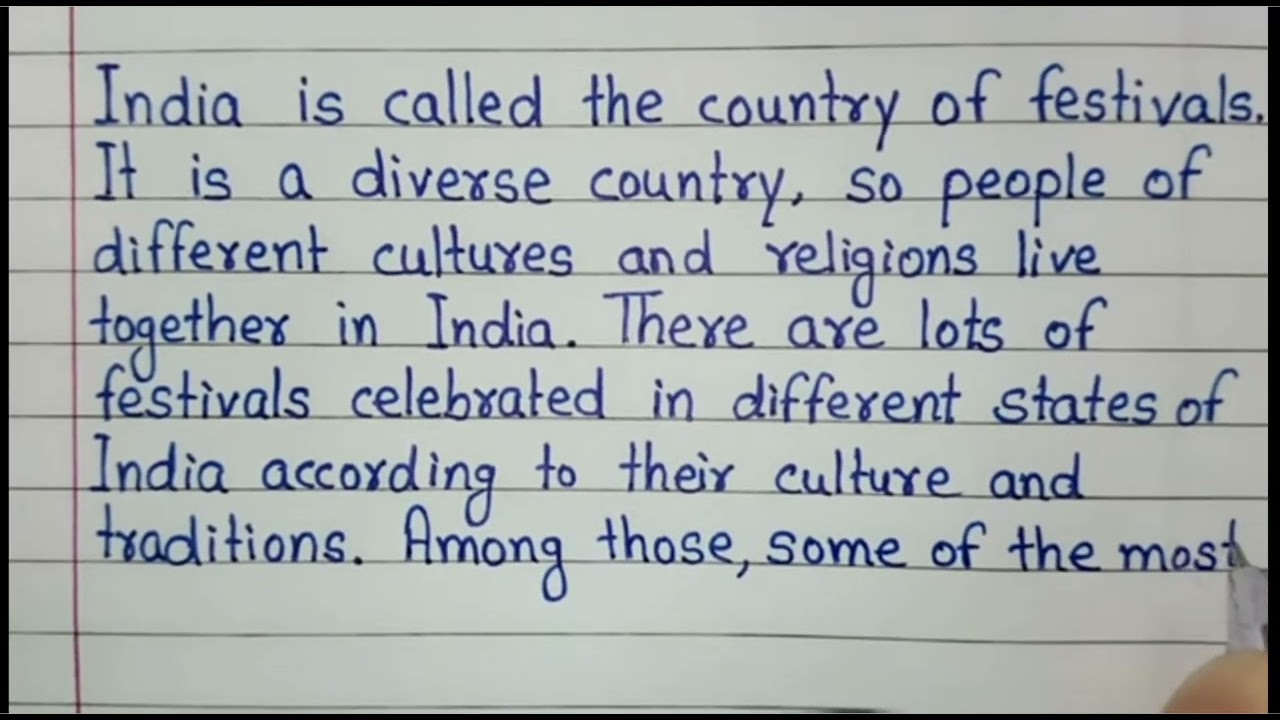 India is called the country of festivals.
It is a diverse country, so people of
different cultures and religions live
together in India. There are lots of
festivals celebrated in different states of
India according to their culture and
traditions. Among those, some of the most